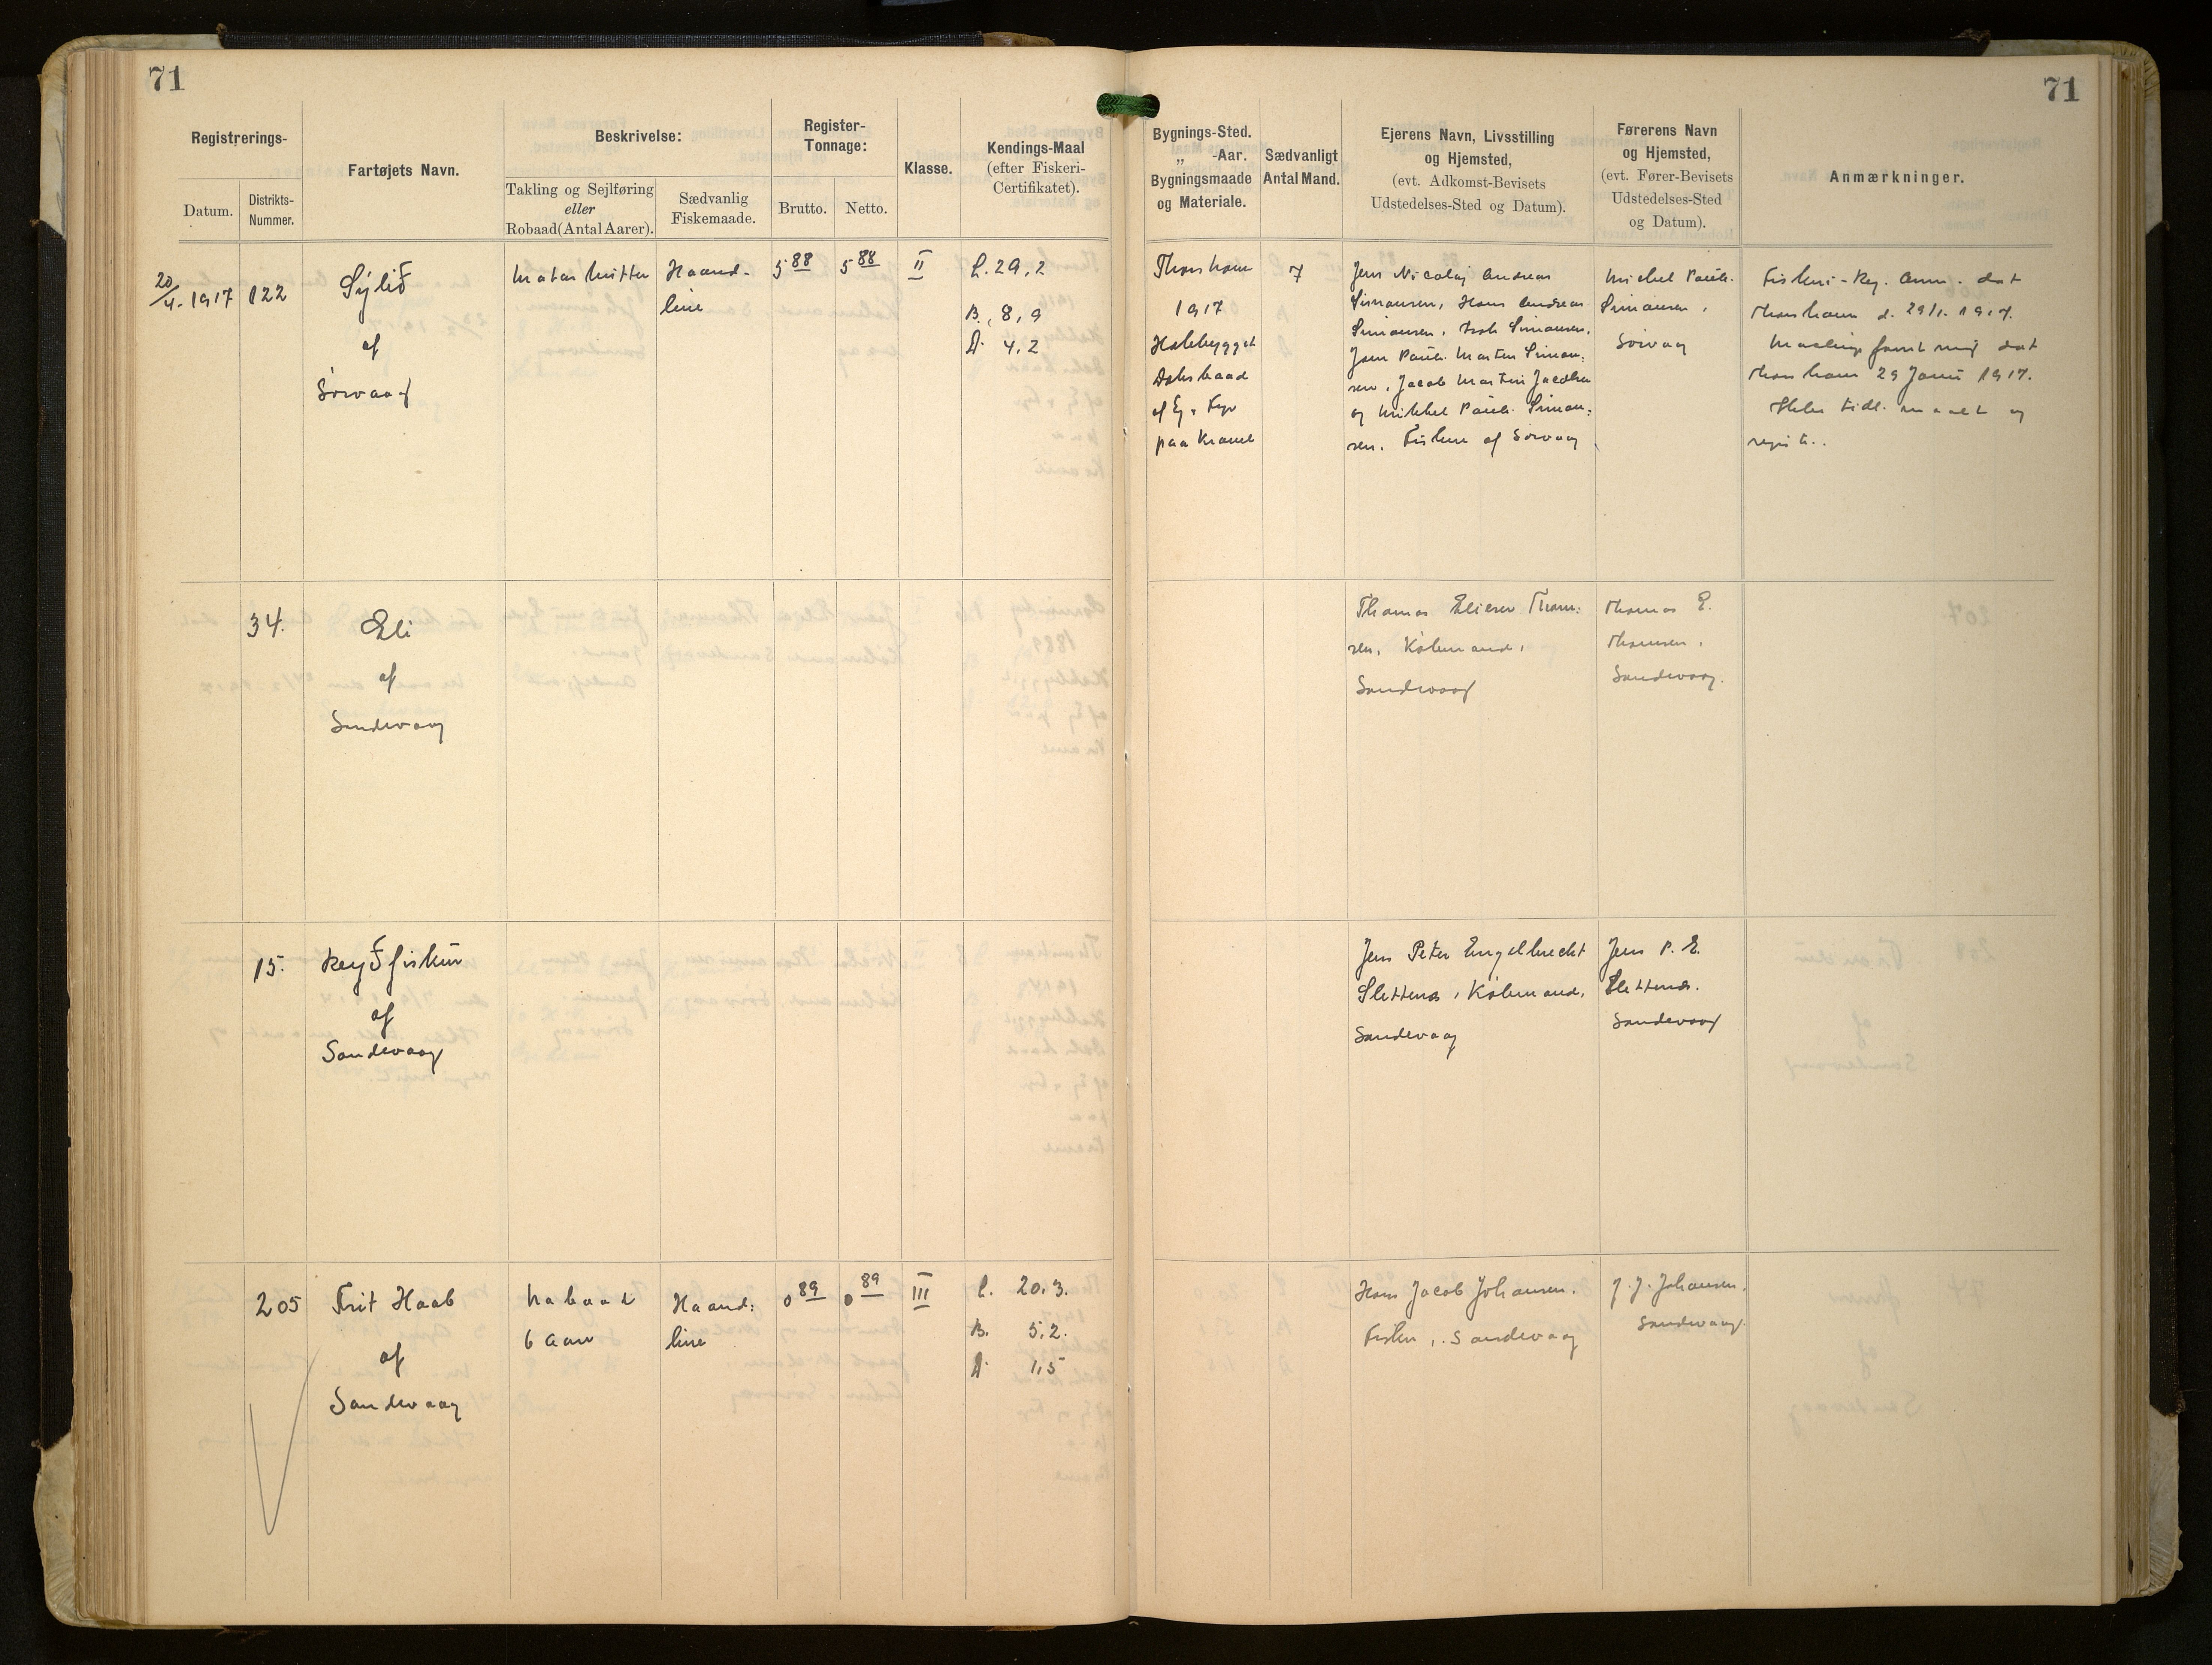 71
71
Registrerings-
Datum.
Distrikts-
Nummer.
Fartøjets Navn.
Beskrivelse:
Takling og Sejlføring
eller
Robaad (Antal Aarer).
Sædvanlig
Fiskemaade.
Register-
Tonnage:
Brutto.
Netto.
Klasse.
Kendings-Maal
(efter Fiskeri-
Certifikatet).
Bygnings-Sted.
„ -Aar.
Bygningsmaade
og Materiale.
Sædvanligt
Antal Mand.
Ejerens Navn, Livsstilling
og Hjemsted,
(evt. Adkomst-Bevisets
Udstedelses-Sted og Datum).
Førerens Navn
og Hjemsted,
(evt. Fører-Bevisets
Udstedelses-Sted
og Datum).
Anmærkninger.
20/4. 1917
122
af
Sörvaag
Motorkutter
Haand-
line
5 88
5 88
II
L. 29,2
B. 8,9
D. 4,2
Thorshavn
1917
Helebygget
Dæksbaad
af Eg & Fyr
paa Kravel
7
Jens Nicolaj Andreas
Simonsen, Hans Andreas
Simonsen, Simonsen,
Joen Pauli Morten Simon-
sen, Jacob Martin Jacobsen
og Mikkel Pauli Simon-
sen. Fiskere af Sörvaag
Michel Pauli
Simonsen,
Sörvaag
Fiskeri-Reg. Anm. dat
Thorshavn d. 29/1. 1917.
dat
Thorshavn 29 Januar 1917.
Ikke tidl. maalt og
34.
Eli
af
Sandevaag
Thomas Elieser Thom-
sen, Købmand,
Sandevaag
Thomas E.
Thomsen,
Sandevaag.
15.
Reyðfiskur
af
Sandevaag
Jens Peter Engelbrecht
Slettenæs, Købmand,
Sandevaag
Jens P. E.
Slettenæs.
Sandevaag
205
Frit Haab
af
Sandevaag
Robaad
6 Aarer
Haand-
line
0 89
0 89
III
L. 20.3.
B. 5,2.
D. 1,5
Hans Jacob Johansen.
Fisker, Sandevaag
J. J. Johansen.
Sandevaag.